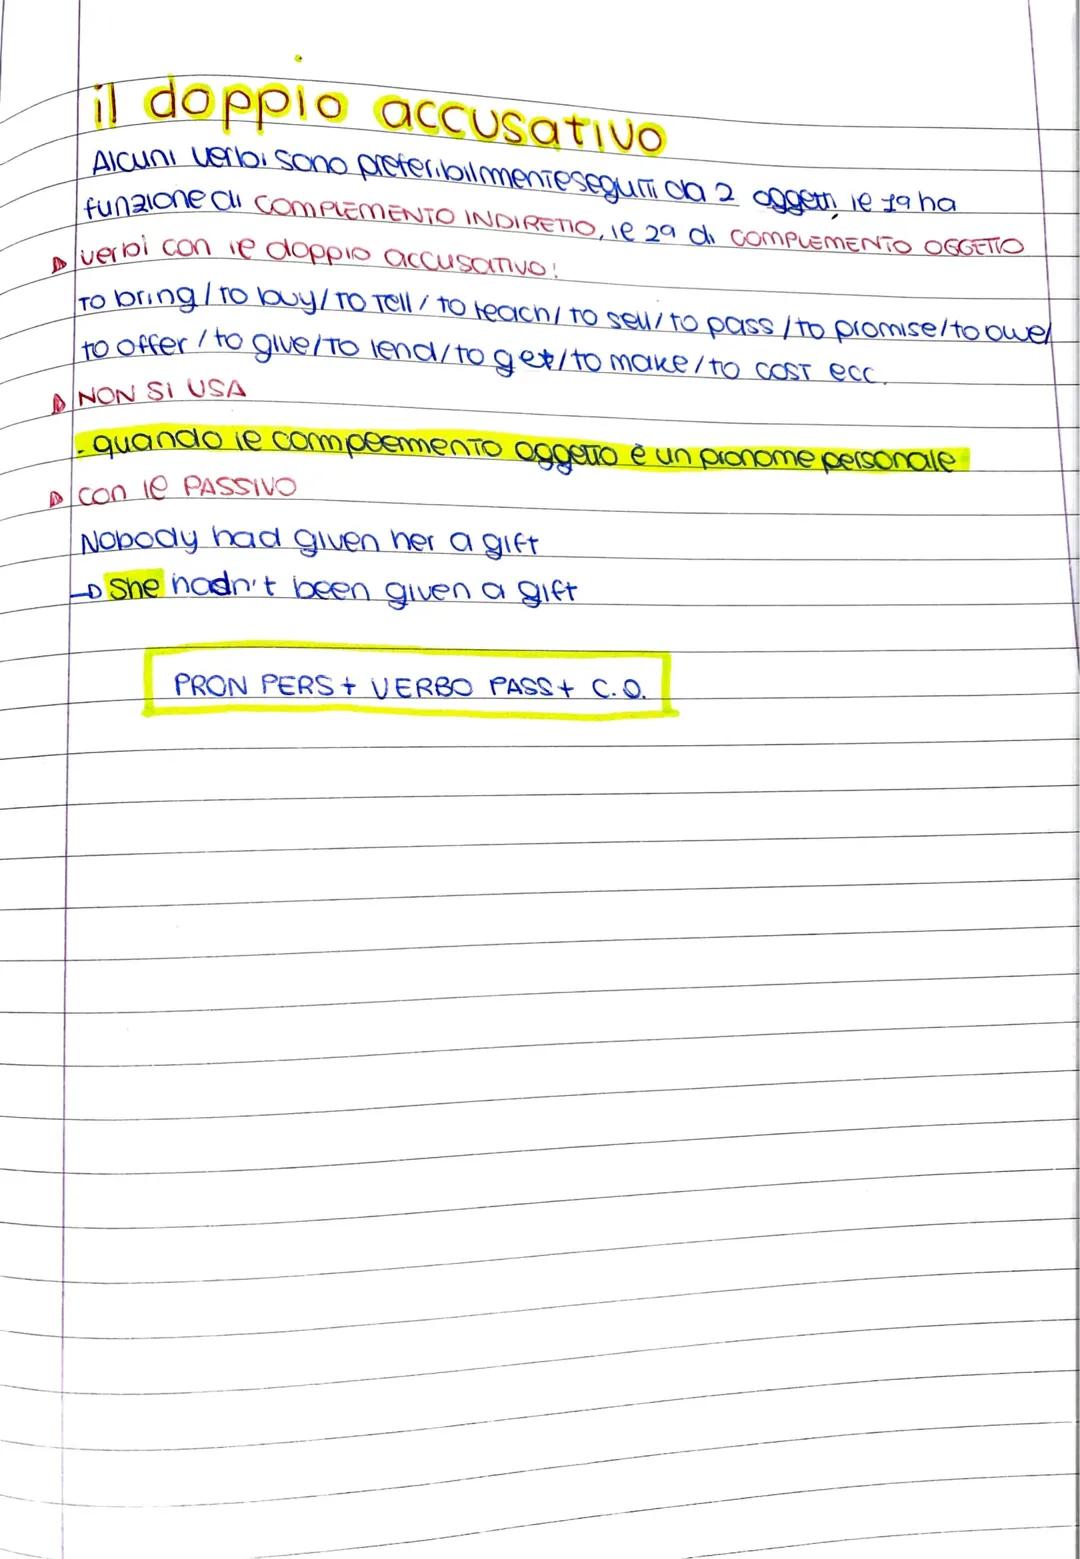 il doppio accusativo
Alcuni verbi sono preferibilmente seguiti da 2 oggetti, il 1º ha
funzione di COMPLEMENTO INDIRETTO, il 2º di COMPLEMENTO OGGETTO
verbi con il doppio accusativo:
to bring / to buy / to tell / to teach / to sell / to pass / to promise / to owe /
to offer / to give / to lend / to get / to make / to cost ecc.
NON SI USA
- quando il complemento oggetto è un pronome personale
con il PASSIVO
Nobody had given her a gift
→ She hadn't been given a gift
PRON PERS + VERBO PASS + C.O.